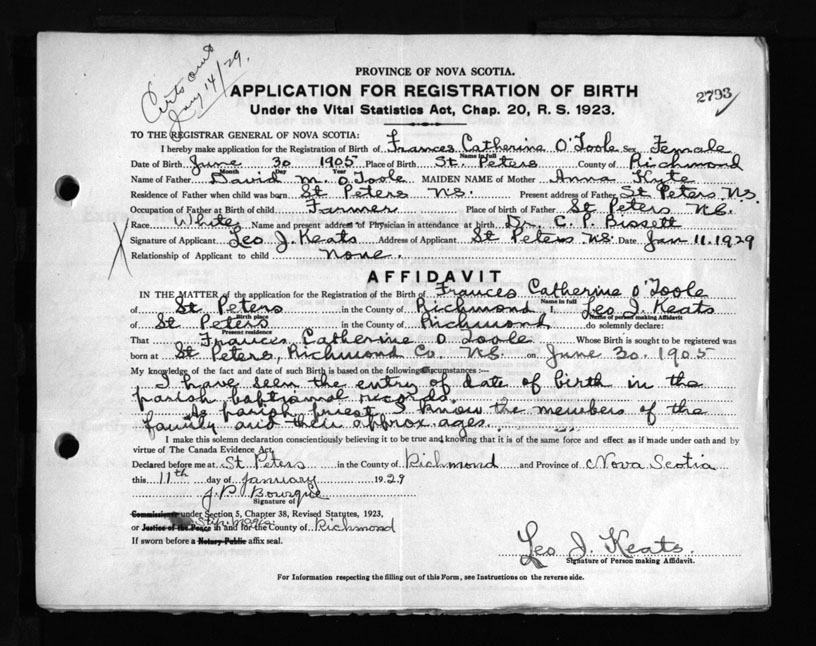 Certs out
Jany 14/29.
PROVINCE OF NOVA SCOTIA.
APPLICATION FOR REGISTRATION OF BIRTH
2793
Under the Vital Statistics Act, Chap. 20, R. S. 1923.
TO THE REGISTRAR GENERAL OF NOVA SCOTIA:
I hereby make application for the Registration of Birth of Frances Catherine O'Toole Sex Female
Name in full
Date of Birth June 30 1905 Place of Birth St. Peters County of Richmond
Month Day Year
Name of Father David M. O Toole MAIDEN NAME of Mother Anna Kyte
Residence of Father when child was born St Peters NS. Present address of Father St Peters NS.
Occupation of Father at Birth of child Farmer Place of birth of Father St Peters NS.
Race White Name and present address of Physician in attendance at birth Dr. C. P. Bissett
Signature of Applicant Leo J. Keats Address of Applicant St Peters NS. Date Jan 11.1929
Relationship of Applicant to child None.
AFFIDAVIT
IN THE MATTER of the application for the Registration of the Birth of Frances Catherine O'Toole
Name in full
of St Peters in the County of Richmond I, Leo J. Keats
Birth place Name of person making Affidavit
of St Peters in the County of Richmond do solemnly declare:
Present residence
That Frances Catherine O Toole Whose Birth is sought to be registered was
born at St Peters, Richmond Co. NS. on June 30, 1905
My knowledge of the fact and date of such Birth is based on the following circumstances:—
I have seen the entry of date of birth in the
parish baptismal records.
As parish priest I know the members of the
family and their approx. ages.
I make this solemn declaration conscientiously believing it to be true and knowing that it is of the same force and effect as if made under oath and by
virtue of The Canada Evidence Act.
Declared before me at St Peters in the County of Richmond and Province of Nova Scotia
this 11th day of January 1929
J. P. Bourque
Signature of
Commissioner under Section 5, Chapter 38, Revised Statutes, 1923,
or Justice of the Peace in and for the County of Richmond
If sworn before a Notary Public affix seal.
Leo J. Keats.
Signature of Person making Affidavit.
For Information respecting the filling out of this Form, see Instructions on the reverse side.